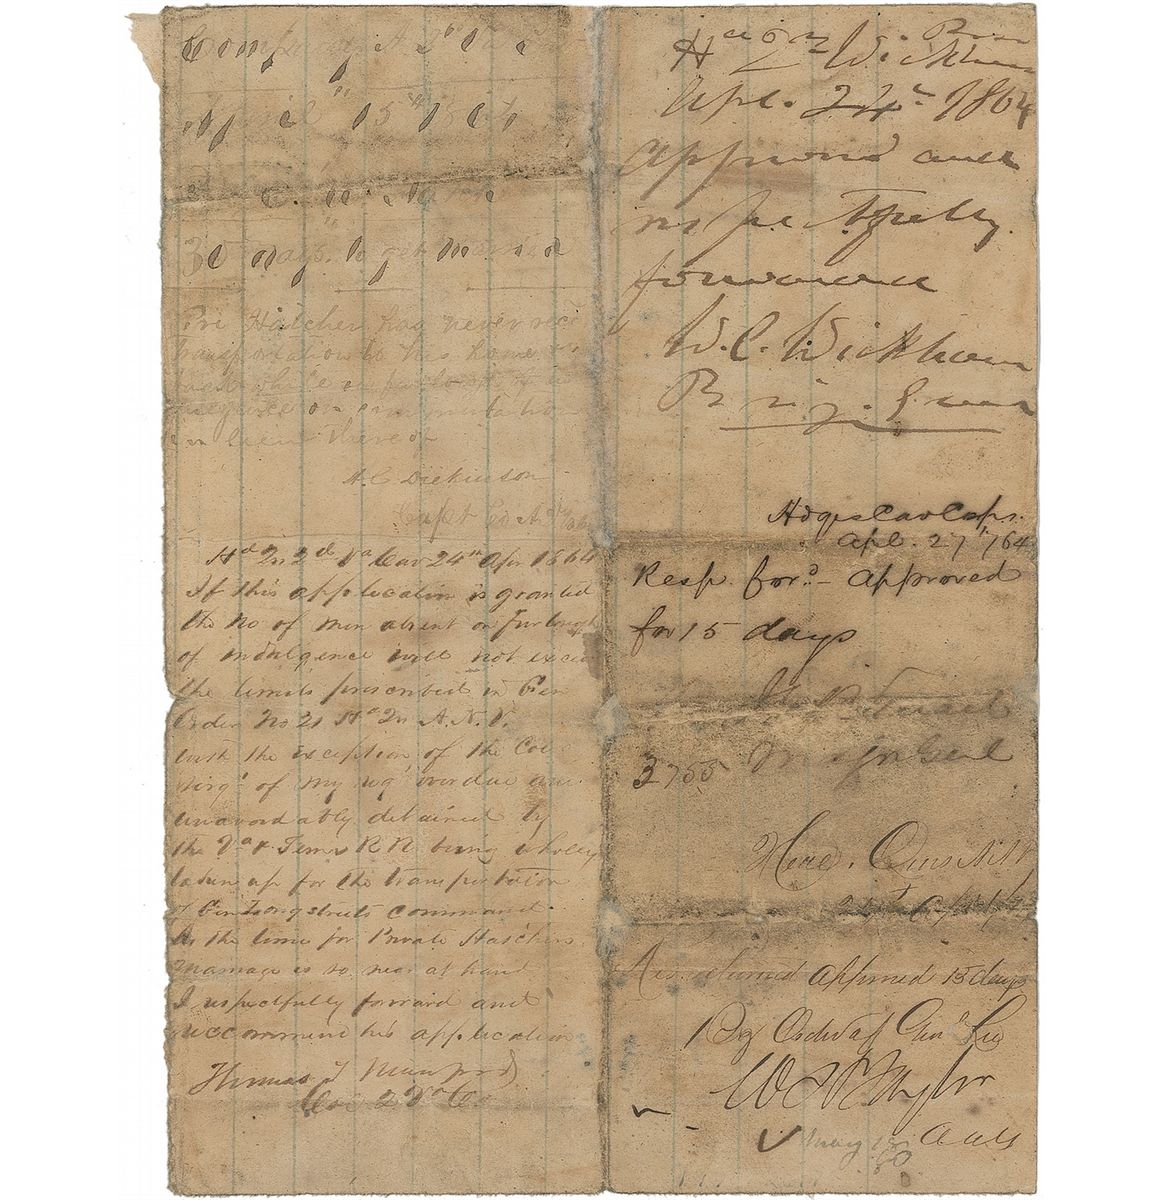 Company A 2nd Va Cav
April 15th 1864
30 days to get married
Pri Hatcher has never rec
transportation to his home
while on furlough
or commutation
in lieu thereof
H C Dickinson
Capt Co A 2d Va
Hd Qrs 2d Va Cav 24th Apr 1864
If this application is granted
the no of men absent on furlough
of indulgence will not exceed
the limits prescribed in Gen
Order No 21 Hd Qrs A. N. V.
with the exception of the Cos
of my regt overdue and
unavoidably detained by
the Va & Tenn R R being wholly
taken up for the transportation
of Gen Longstreets command.
As the time for Private Hatchers
marriage is so near at hand
I respectfully forward and
reccommend his application
Thomas T Munford
Col 2 Va Ca
Hd Qrs Wickhams Brig
Apl. 24th 1864
Approved and
respectfully
forwarded
W. C. Wickham
Brig. Genl
Hdqrs Cav Corps.
Apl. 27th /64
Resp. ford. - approved
for 15 days
Maj Genl
3755
Head Qrs ANV
Res. returned approved 15 days
By Order of Genl Lee
W H Taylor
AAG
May